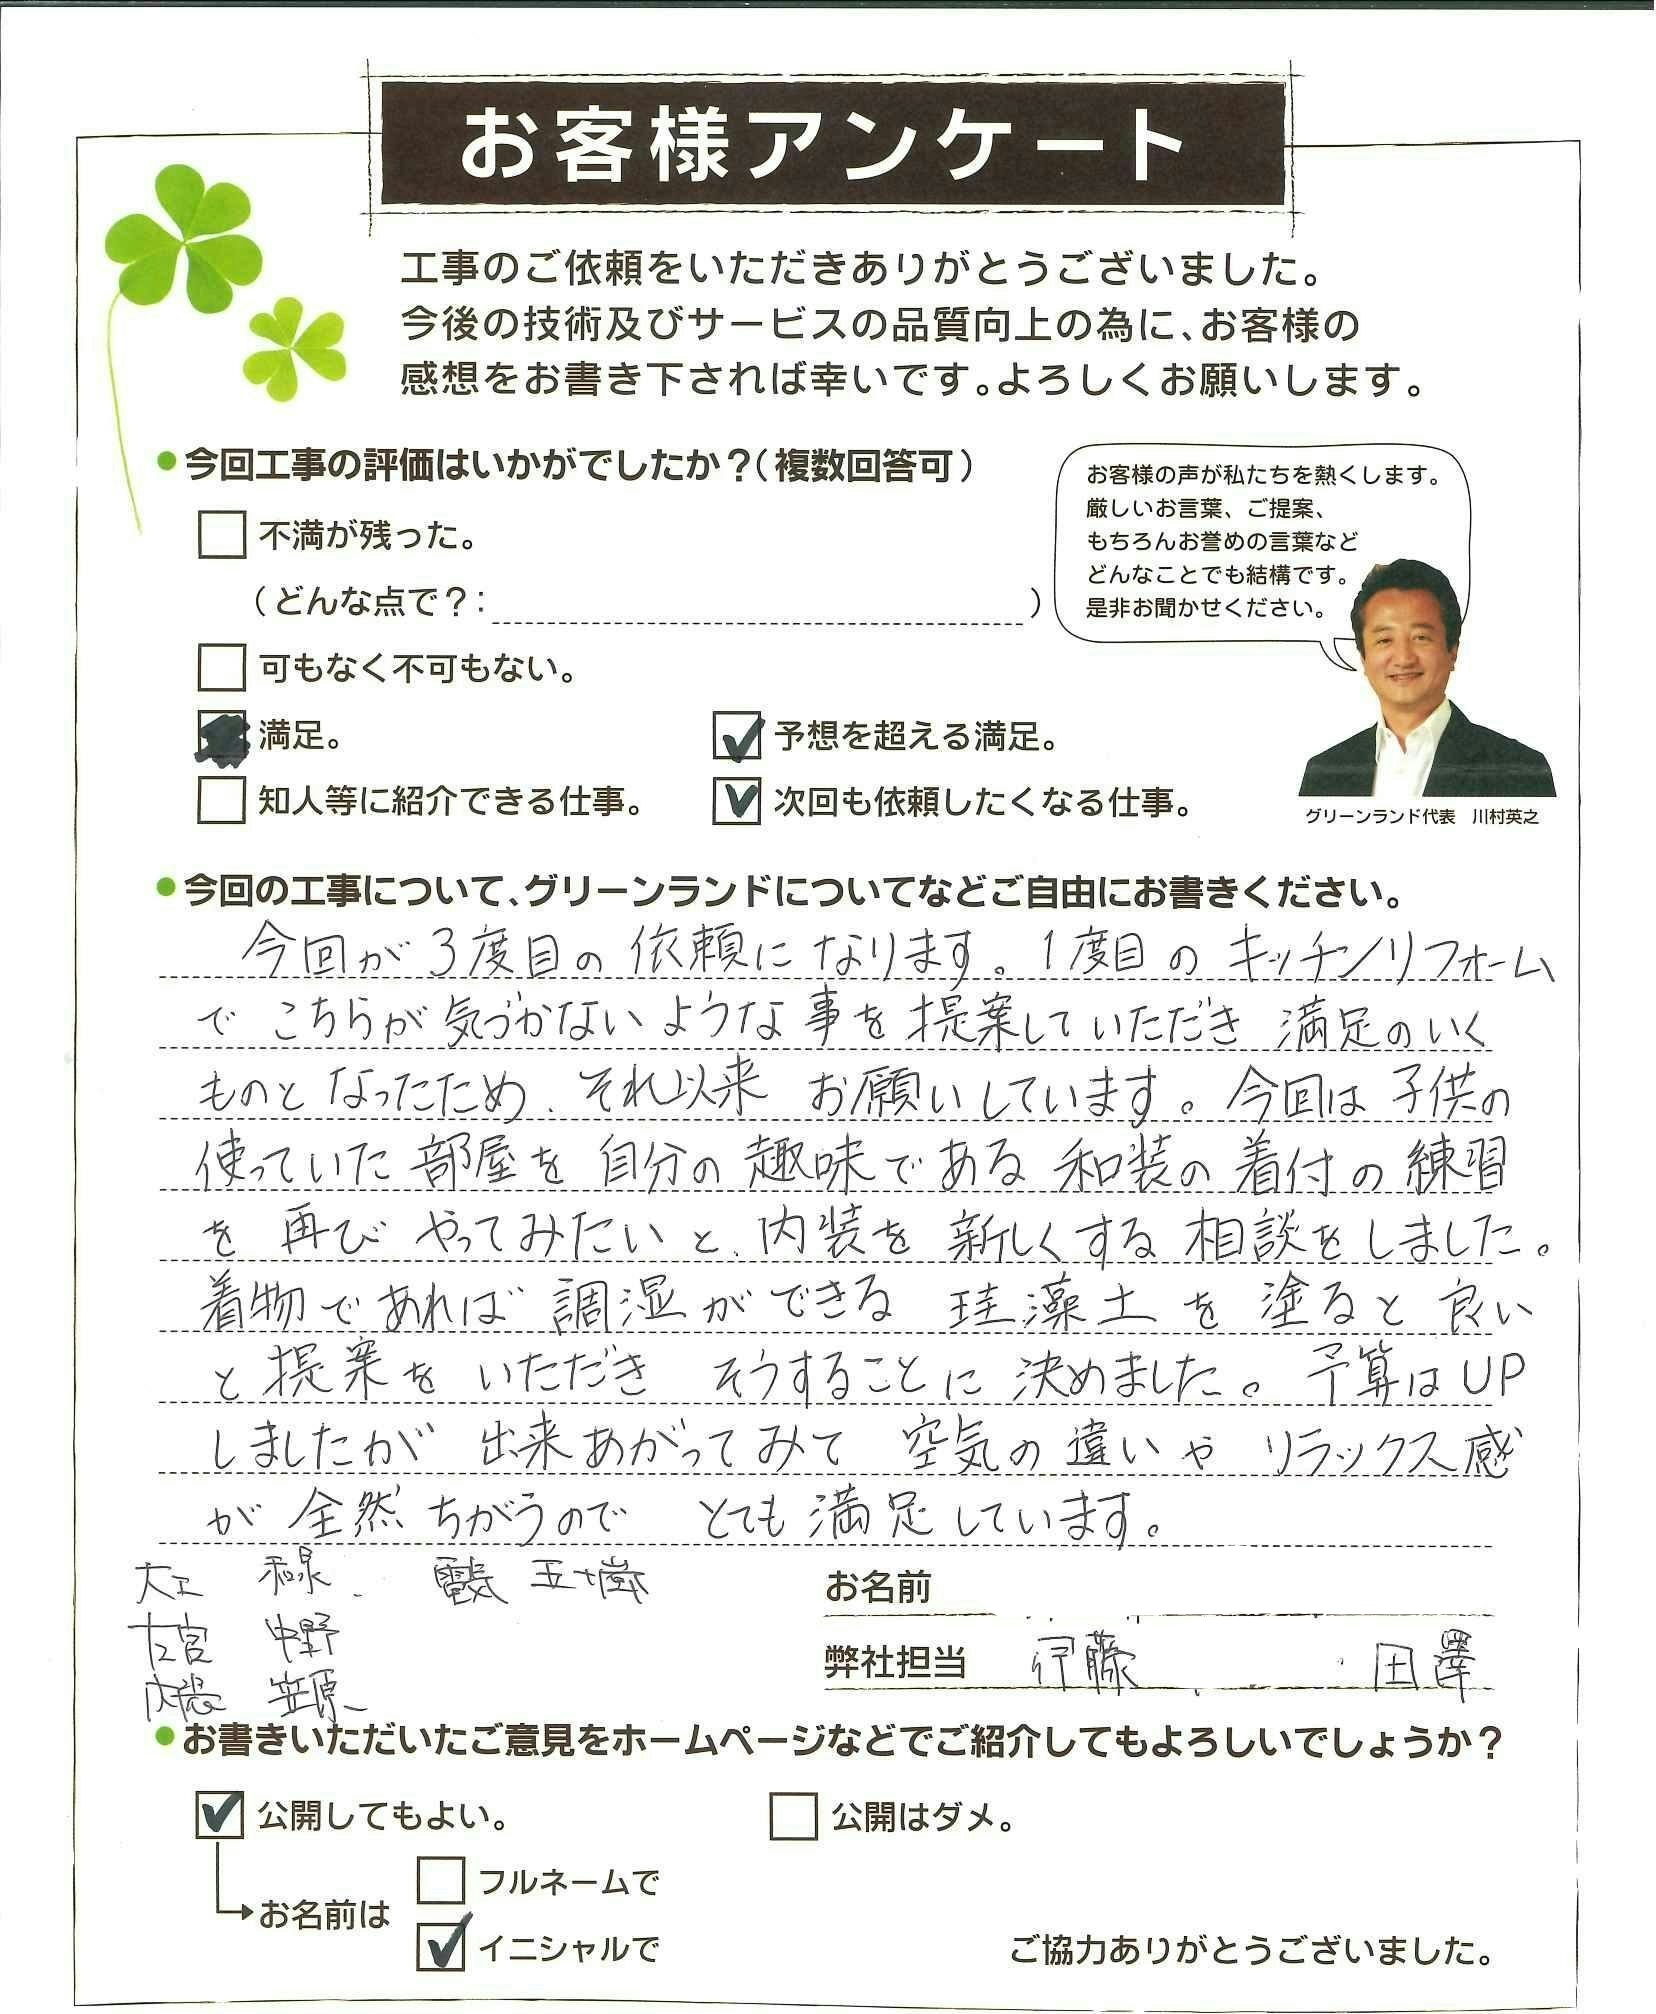 お客様アンケート
工事のご依頼をいただきありがとうございました。
今後の技術及びサービスの品質向上の為に、お客様の
感想をお書き下されば幸いです。よろしくお願いします。
●今回工事の評価はいかがでしたか？（複数回答可）
不満が残った。
（どんな点で？：　　　）
可もなく不可もない。
満足。
予想を超える満足。
知人等に紹介できる仕事。
次回も依頼したくなる仕事。
お客様の声が私たちを熱くします。
厳しいお言葉、ご提案、
もちろんお誉めの言葉など
どんなことでも結構です。
是非お聞かせください。
グリーンランド代表　川村英之
●今回の工事について、グリーンランドについてなどご自由にお書きください。
今回が3度目の依頼になります。1度目のキッチンリフォーム
でこちらが気づかないような事を提案していただき満足のいく
ものとなったため、それ以来お願いしています。今回は子供の
使っていた部屋を自分の趣味である和装の着付の練習
を再びやってみたいと、内装を新しくする相談をしました。
着物であれば調湿ができる珪藻土を塗ると良い
と提案をいただきそうすることに決めました。予算はUP
しましたが出来あがってみて空気の違いやリラックス感
が全然ちがうのでとても満足しています。
大工　　電気　五十嵐
左官　中野
内装　笠原
お名前
弊社担当　伊藤　田澤
●お書きいただいたご意見をホームページなどでご紹介してもよろしいでしょうか？
公開してもよい。
公開はダメ。
お名前は
フルネームで
イニシャルで
ご協力ありがとうございました。